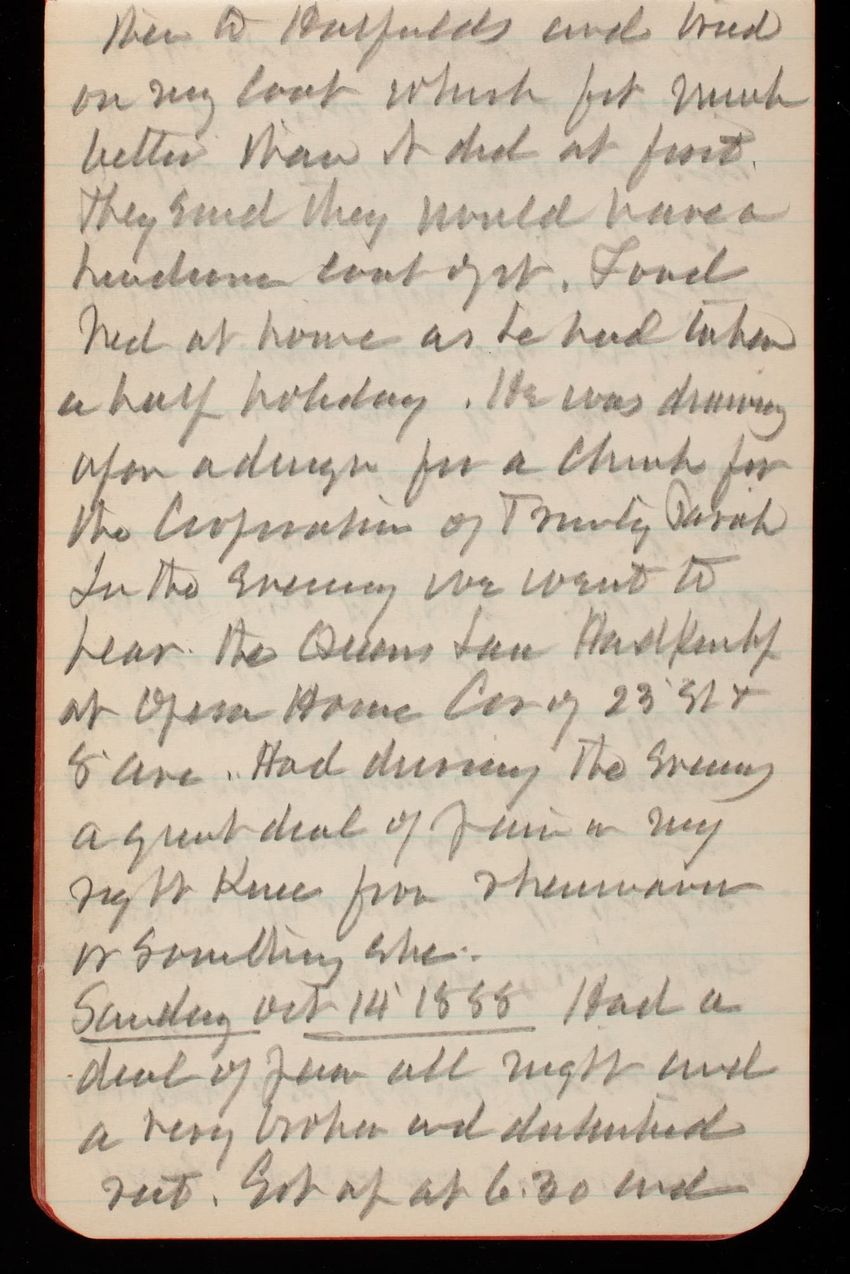 then to Hatfields and tried
on my coat which fit much
better than it did at first.
They said they would have a
handsome coat of it. Found
Ned at home as he had taken
a half holiday. He was drawing
upon a design for a Church for
the Corporation of Trinity Parish
In the Evening we went to
hear the Queens
at Opera House Cor of 23 St &
8 Ave. Had during the Evening
a great deal of pain in my
right Knee from rheumatism
or something else.
Sunday Oct 14 1888 Had a
deal of pain all night and
a very broken and disturbed
rest. Got up at 6.30 and